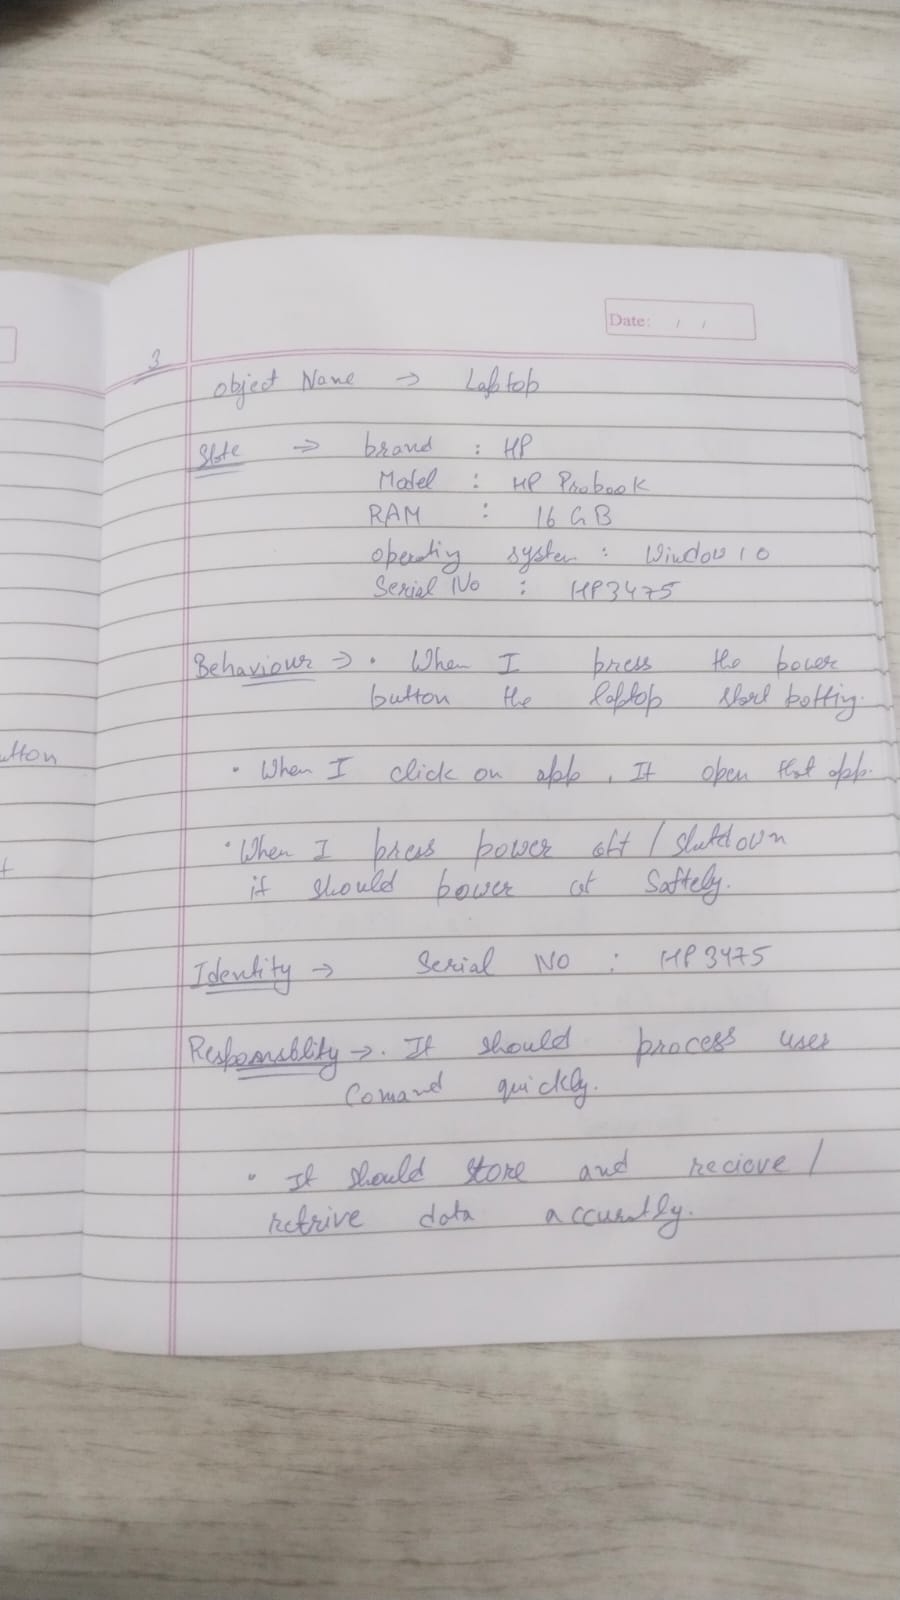 Date: / /
3
Object Name → Laptop
State → brand : HP
Model : HP Probook
RAM : 16 GB
operating system : Window 10
Serial No : HP3475
Behaviour → • When I press the power
button the laptop start botting.
utton
• When I click on app, It open that app.
• When I press power off / shutdown
it should power of Saftely.
Identity → Serial NO : HP3475
Responsiblity → • It should process user
Comand quickly.
• It should store and recieve /
retrive data accuratly.